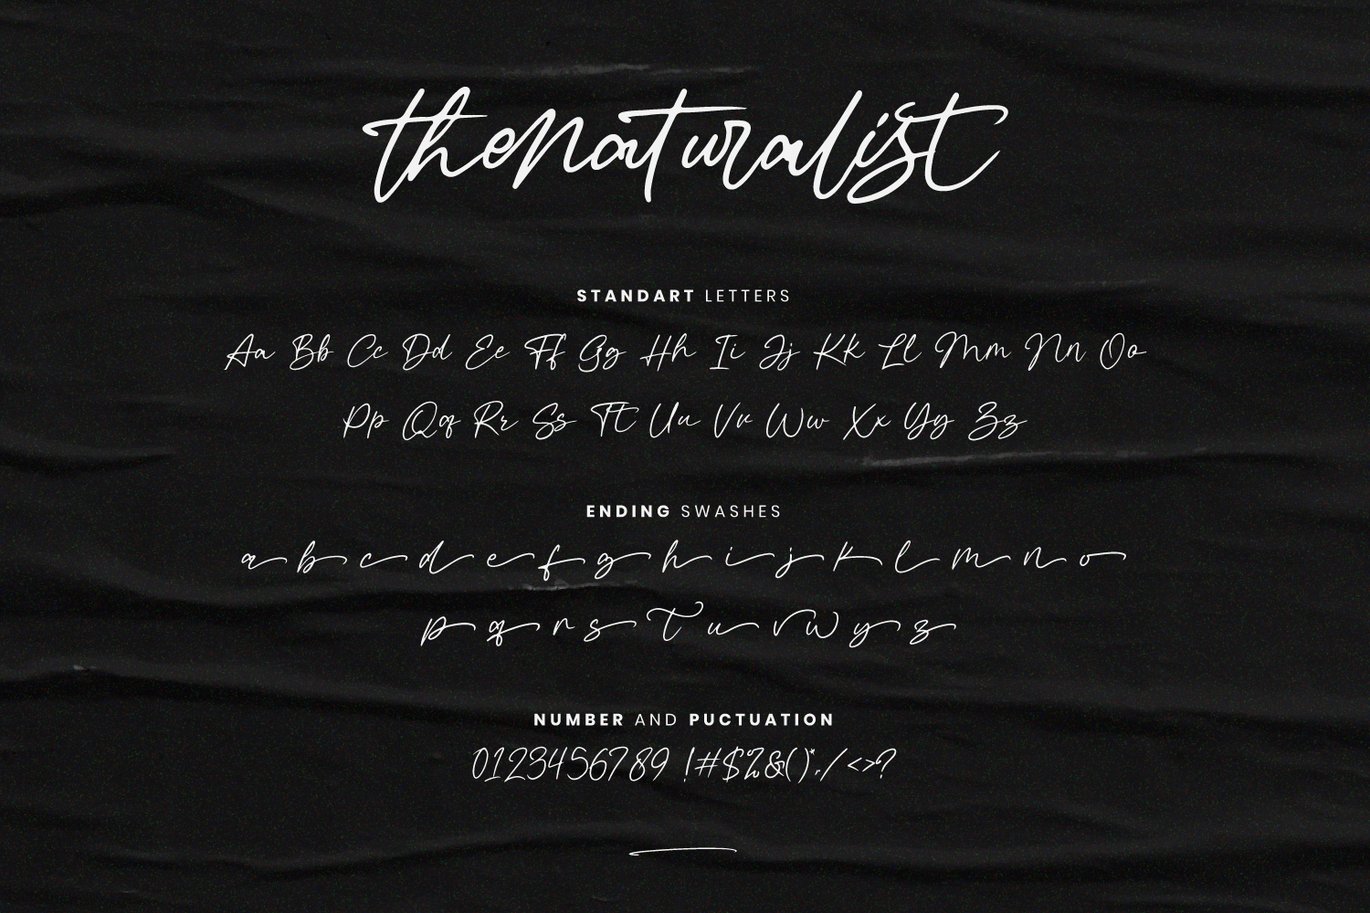 thenaturalist
STANDART LETTERS
Aa Bb Cc Dd Ee Ff Gg Hh Ii Jj Kk Ll Mm Nn Oo
Pp Qq Rr Ss Tt Uu Vv Ww Xx Yy Zz
ENDING SWASHES
a b c d e f g h i j k l m n o
p q r s t u v w y z
NUMBER AND PUCTUATION
0123456789 !#$%&()*,./<>?